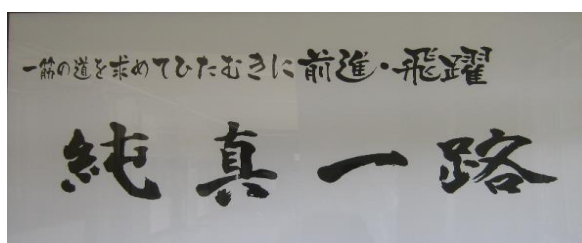 一筋の道を求めてひたむきに前進・飛躍
純真一路